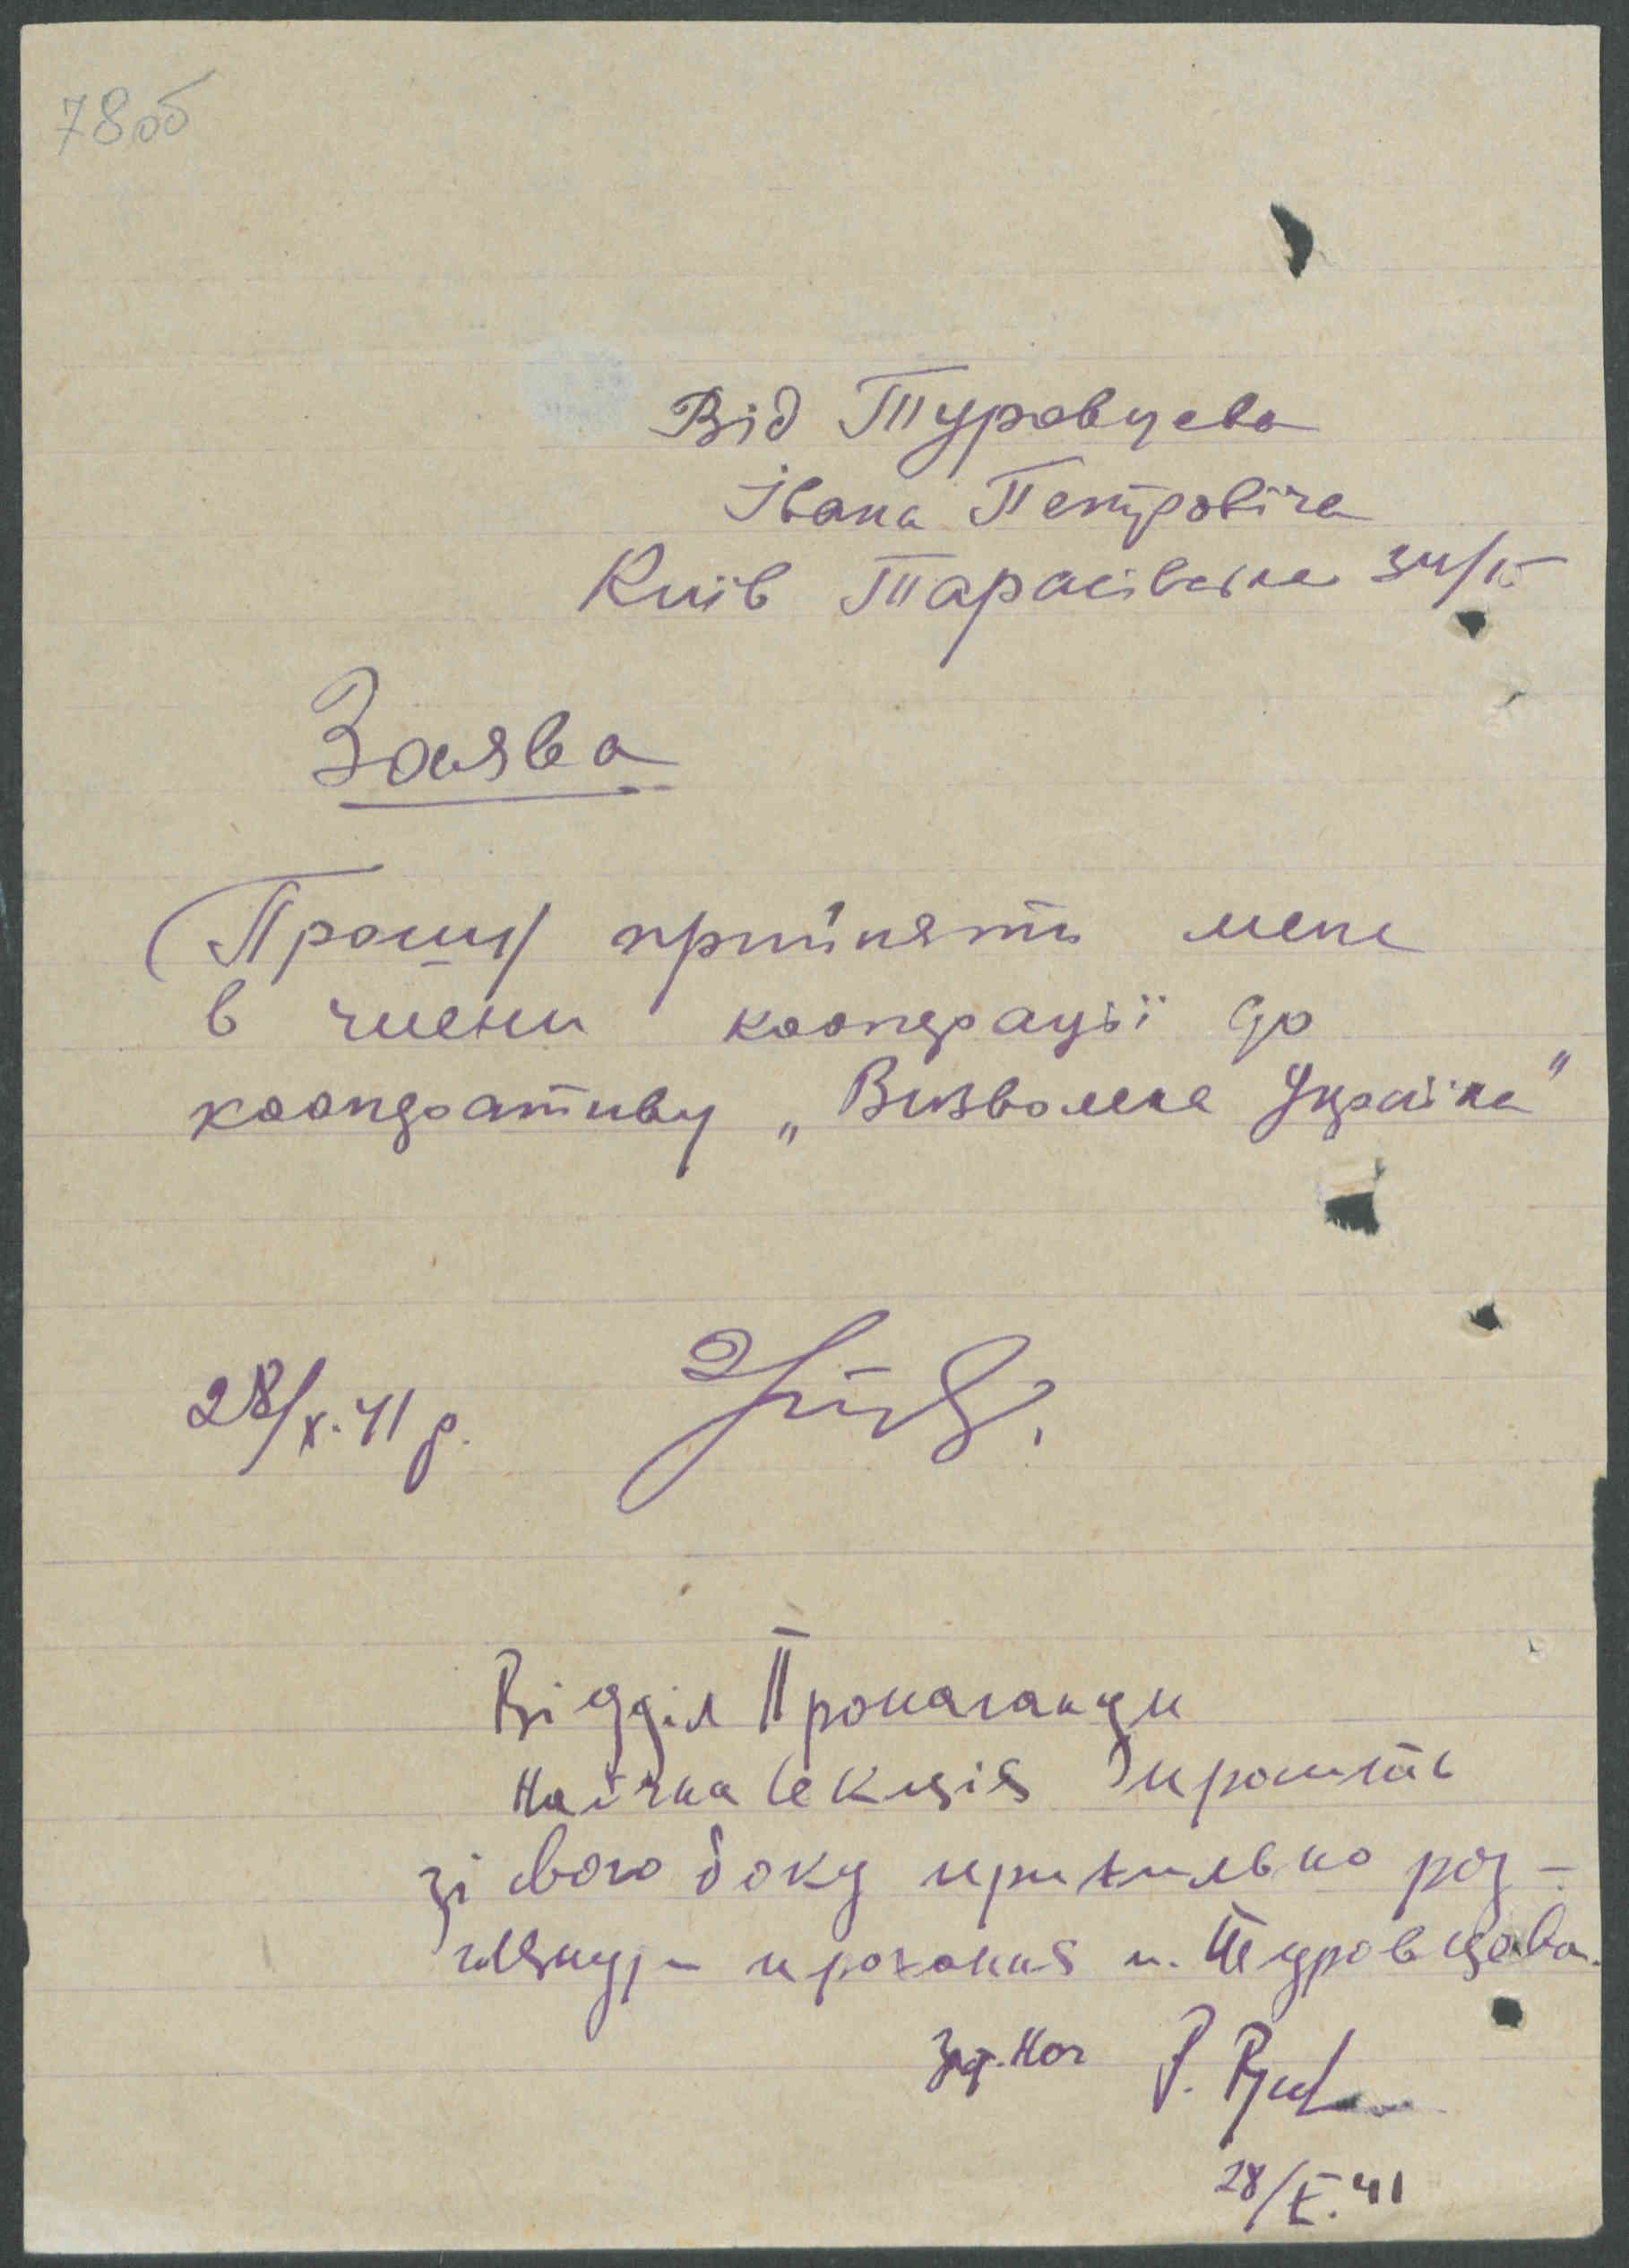 78об
Від Туровцева
Івана Петровіча
Київ Тарасівська
Заява
Прошу прийнять мене
в члени кооперації до
кооперативу „Визволена Україна"
28/X.41 р.
Відділ Пропаганди
секція просить
зі свого боку прихильно роз-
глянути прохання п. Туровцева.
Заст. Нач
28/X.41